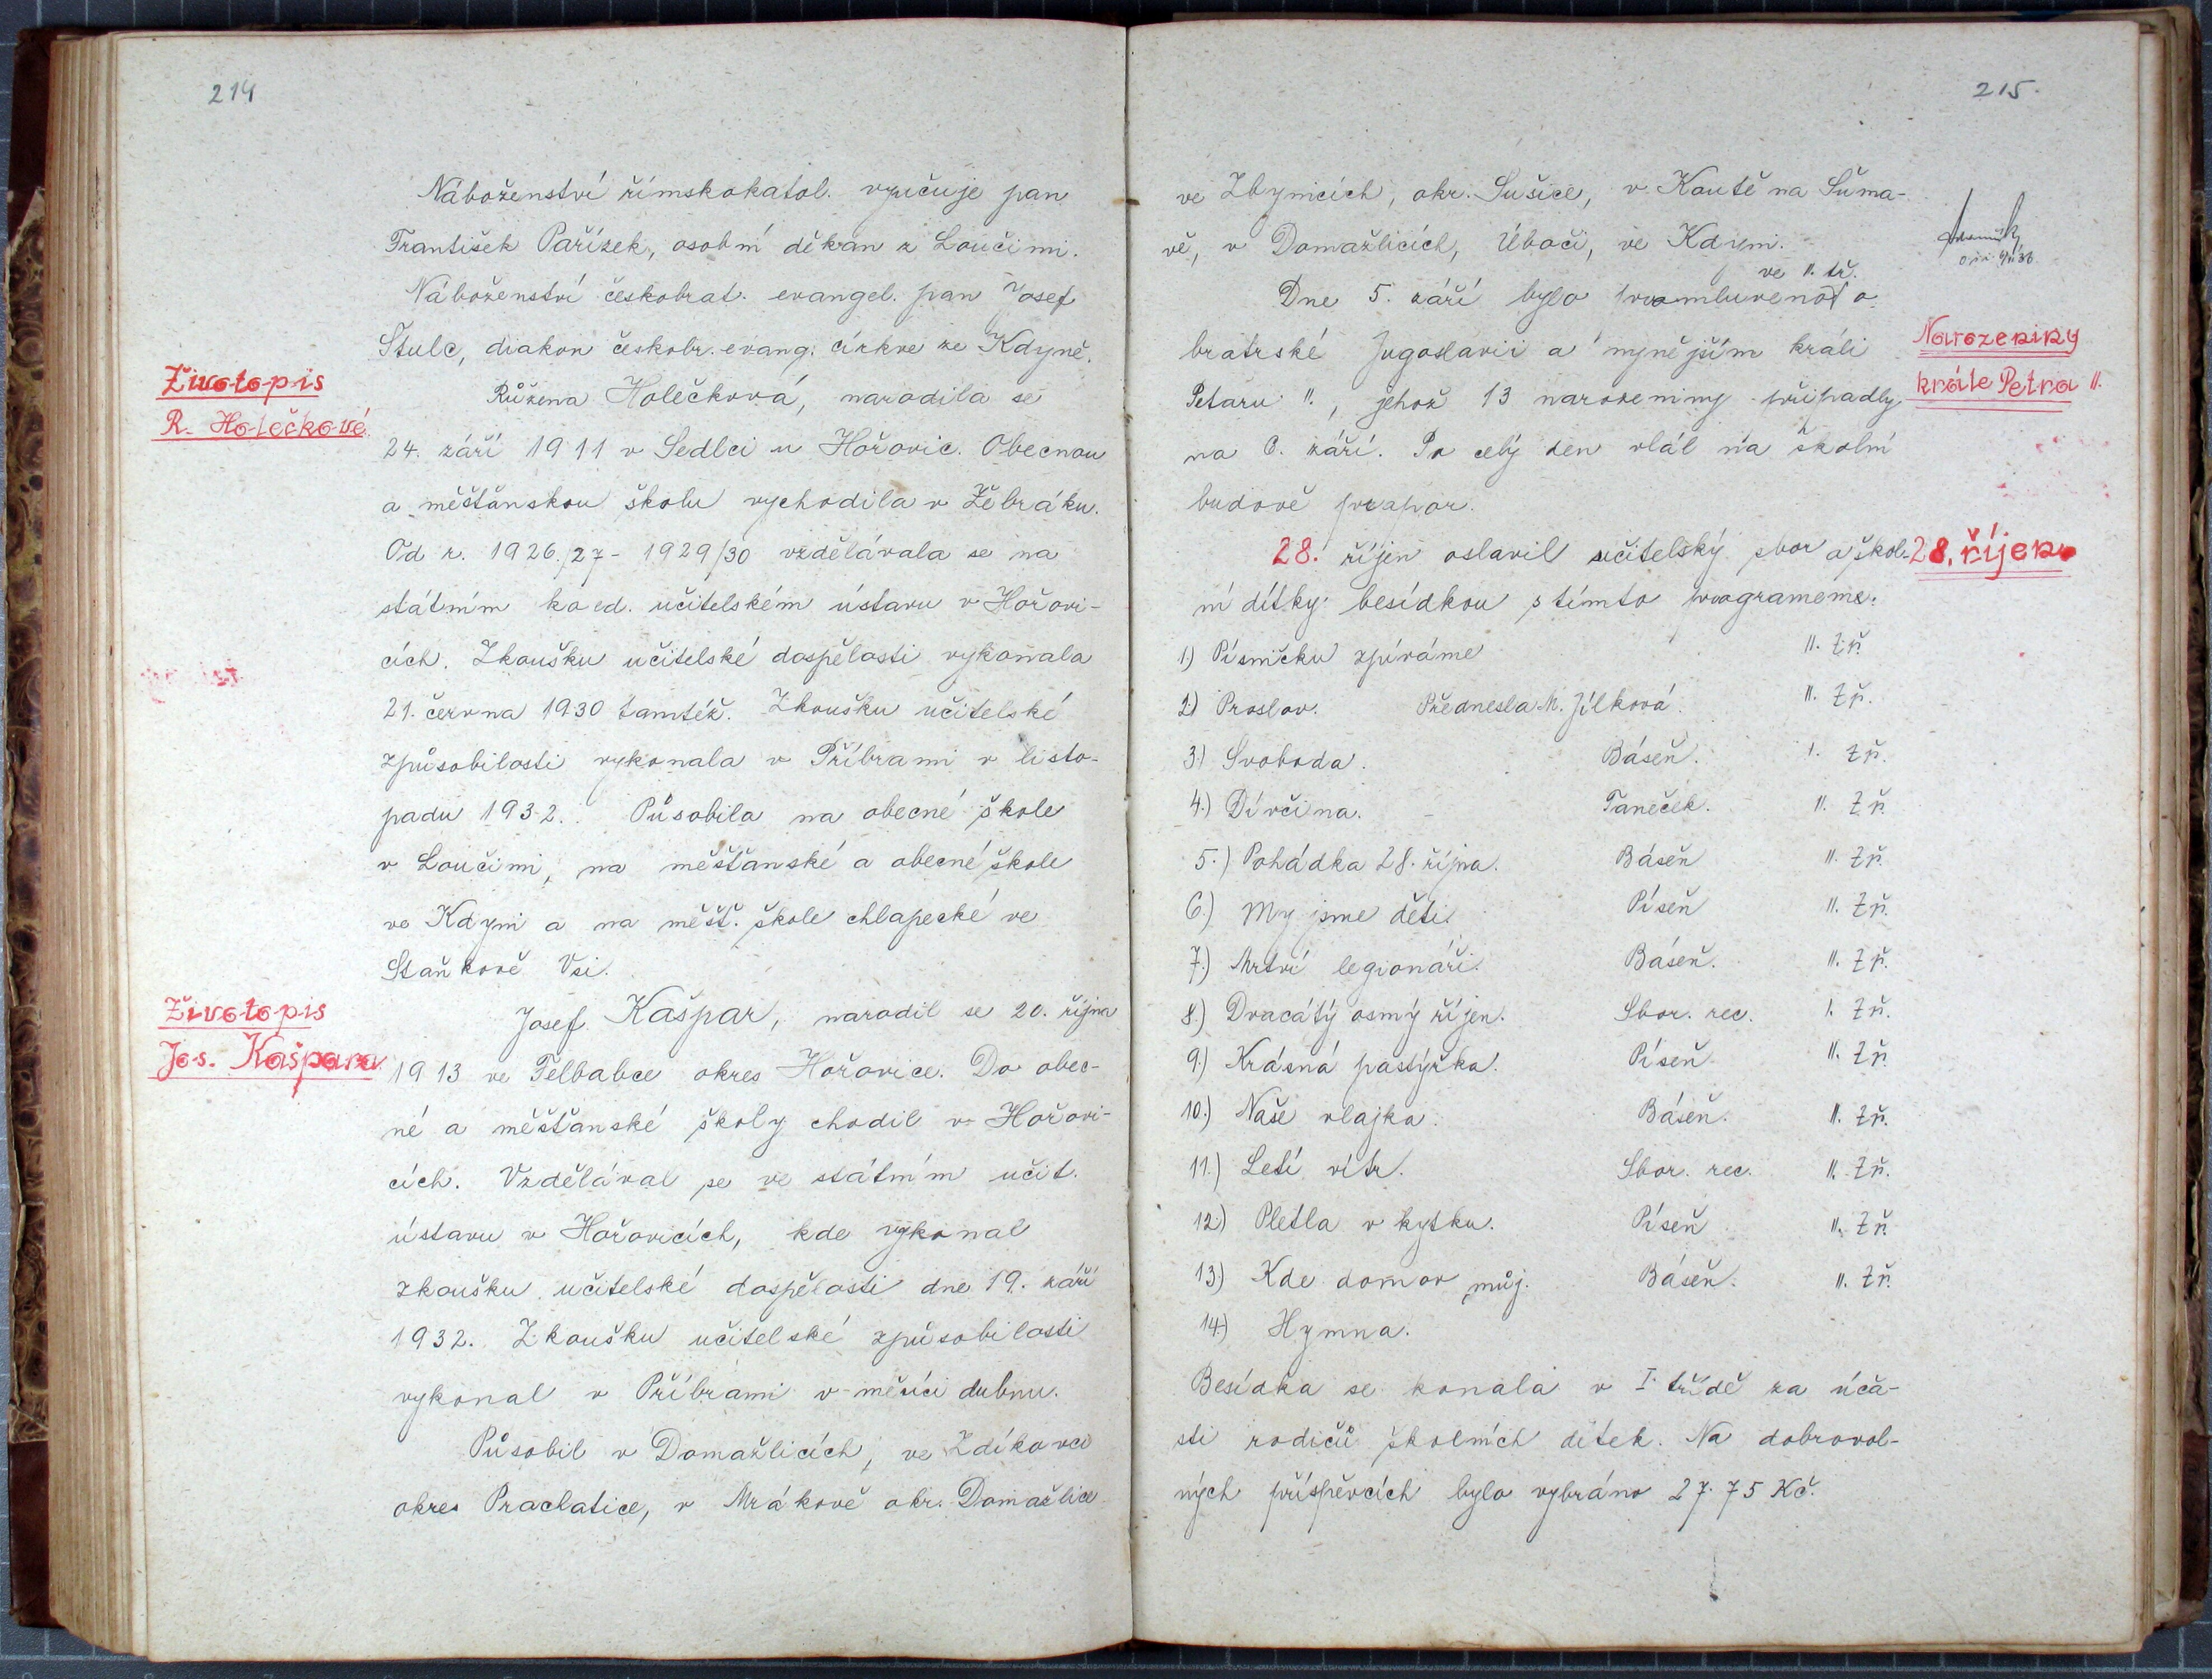 214
Náboženství římskokatol. vyučuje pan
František Pařízek, osobní děkan z Loučimi.
Náboženství českobrat. evangel. pan Josef
Štulc, diakon českobr. evang. církve ze Kdyně.
Životopis
R. Holečkové
Růžena Holečková, narodila se
24. září 1911 v Sedlci u Hořovic. Obecnou
a měšťanskou školu vychodila v Žebráku.
Od r. 1926/27 - 1929/30 vzdělávala se na
státním koed. učitelském ústavu v Hořovi-
cích. Zkoušku učitelské dospělosti vykonala
21. června 1930 tamtéž. Zkoušku učitelské
způsobilosti vykonala v Příbrami v listo-
padu 1932. Působila na obecné škole
v Loučimi, na měšťanské a obecné škole
ve Kdyni a na měšť. škole chlapecké ve
Staňkově Vsi.
Životopis
Jos. Kašpara
Josef Kašpar, narodil se 20. října
1913 ve Felbabce okres Hořovice. Do obec-
né a měšťanské školy chodil v Hořovi-
cích. Vzdělával se ve státním učit.
ústavu v Hořovicích, kde vykonal
zkoušku učitelské dospělosti dne 19. září
1932. Zkoušku učitelské způsobilosti
vykonal v Příbrami v měsíci dubnu.
Působil v Domažlicích, ve Zdíkovci
okres Prachatice, v Mrákově okr. Domažlice
215.
ve Zbynicích, okr. Sušice, v Koutě na Šuma-
vě, v Domažlicích, Úboči, ve Kdyni.
ve II. tř.
Dne 5. září bylo promluveno o
bratrské Jugoslavii a nynějším králi
Petaru II., jehož 13 narozeniny připadly
na 6. září. Po celý den vlál na školní
budově prapor.
Narozeniny
krále Petra II.
28. říjen oslavil učitelský sbor a škol-
ní dítky besídkou s tímto programem:
28. říjen
1.) Písničku zpíváme II. tř.
2.) Proslov. Přednesla M. Jílková. II. tř.
3.) Svoboda. Báseň. I. tř.
4.) Dívčina. Taneček. II. tř.
5.) Pohádka 28. října. Báseň II. tř.
6.) My jsme děti. Píseň II. tř.
7.) Mrtví legionáři. Báseň. II. tř.
8.) Dvacátý osmý říjen. Sbor. rec. I. tř.
9.) Krásná pastýřka. Píseň II. tř.
10.) Naše vlajka. Báseň. II. tř.
11.) Letí vítr. Sbor. rec. II. tř.
12.) Pletla v kytku. Píseň II. tř.
13.) Kde domov můj. Báseň. II. tř.
14.) Hymna.
Besídka se konala v I. třídě za úča-
sti rodičů školních dítek. Na dobrovol-
ných příspěvcích bylo vybráno 27.75 Kč.